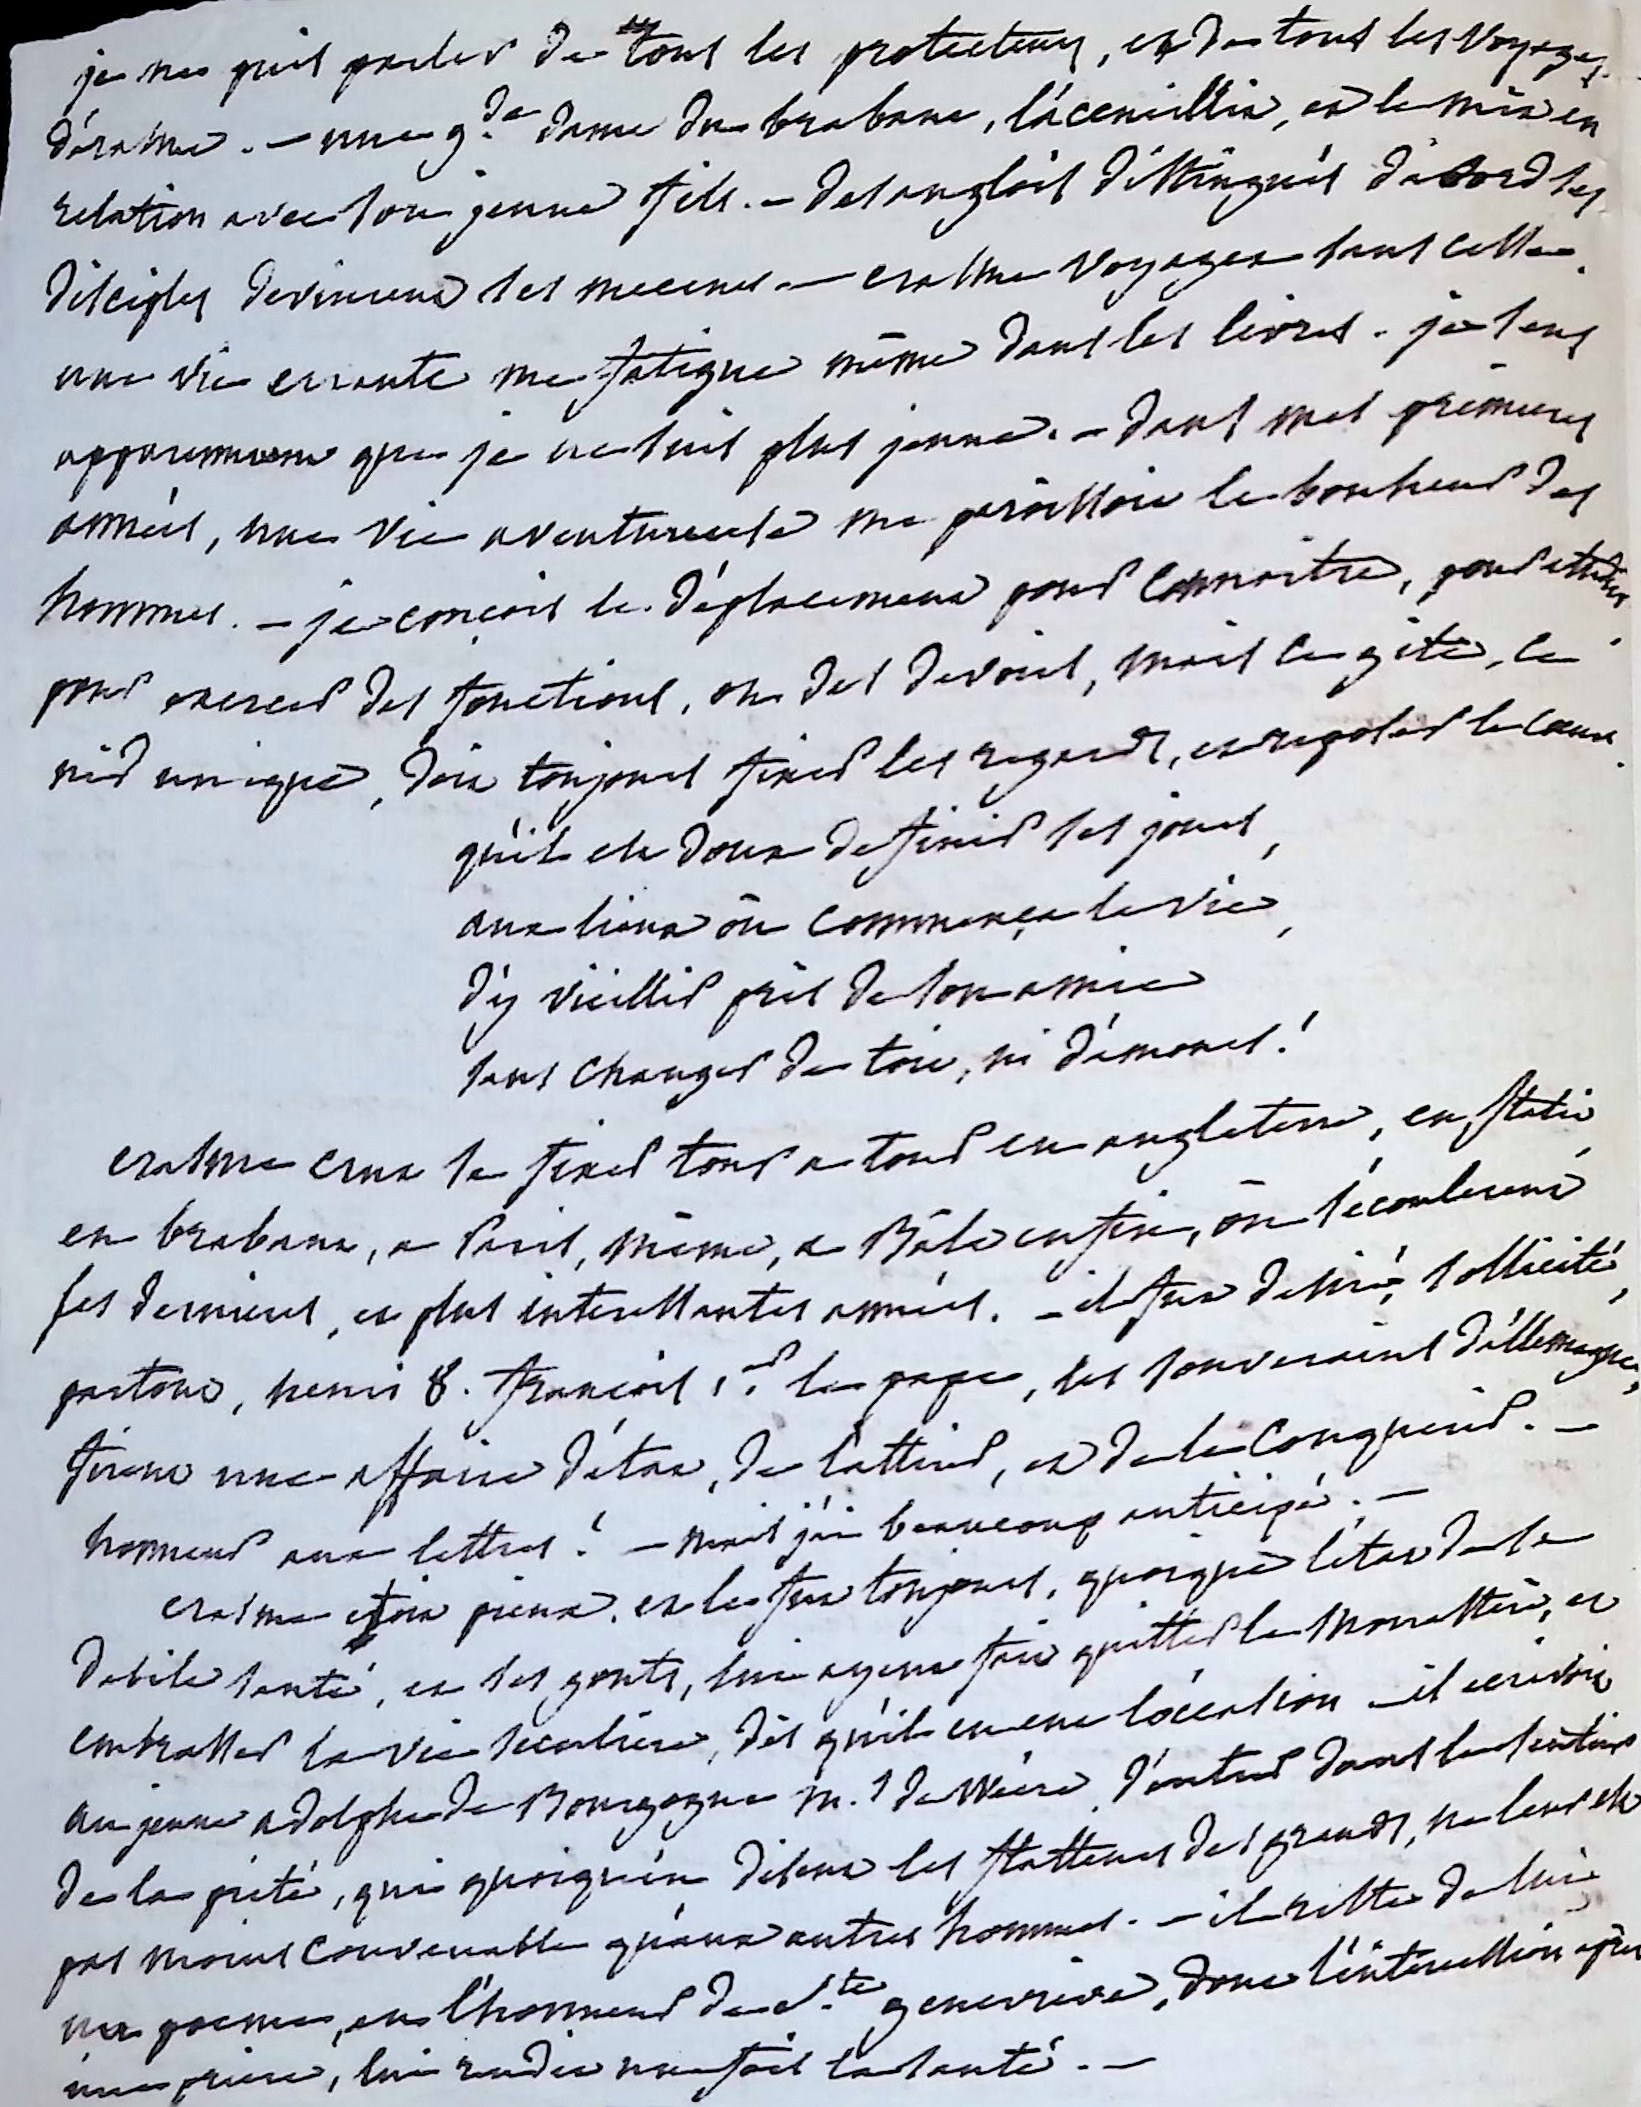 je ne puis parler de tous les protecteurs, et de tous les voyages
d'érasme. — une g.de dame du brabant, l'accueillit, et le mit en
relation avec son jeune fils. — des anglois distingués d'abord ses
disciples devinrent ses mecenes. — erasme voyagea sans cesse.
une vie errante me fatigue même dans les livres. je sens
apparemment que je ne suis plus jeune. — dans mes premieres
années, une vie aventureuse me paroissoit le bonheur des
hommes. — je conçois le déplacement pour connoitre, pour étudier
pour exercer des fonctions, ou des devoirs, mais le gite, le
nid unique, doit toujours fixer les regards, et rapeler le cœur.
qu'il est doux de finir ses jours,
aux lieux où commença la vie,
d'y vieillir près de son amie
sans changer de toit, ni d'amours!
erasme crut se fixer tour a tour en angleterre, en italie,
en brabant, a Paris, même, a Bâle enfin, où s'écoulerent
ses dernieres, et plus interessantes années. — il fut desiré, sollicité,
partout, henri 8. françois 1.er le pape, les souverains d'allemagne,
firent une affaire d'état, de l'attirer, et de le conquerir. —
honneur aux lettres! — mais j'ai beaucoup anticipé. —
erasme etoit pieux, et le fut toujours, quoique l'état de sa
debile santé, et ses gouts, lui ayent fait quitter le monastere, et
embrasser la vie seculiere, dès qu'il en eut l'occasion — il ecrivoit
au jeune adolphe de Bourgogne m.s de Wéere, d'entrer dans les sentiers
de la pieté, qui quoiqu'en disent les flatteurs des grands, ne leur est
pas moins convenable qu'aux autres hommes. — il reste de lui
un poeme, en l'honneur de s.te genevieve, dont l'intercession après
une priere, lui rendit une fois la santé. —